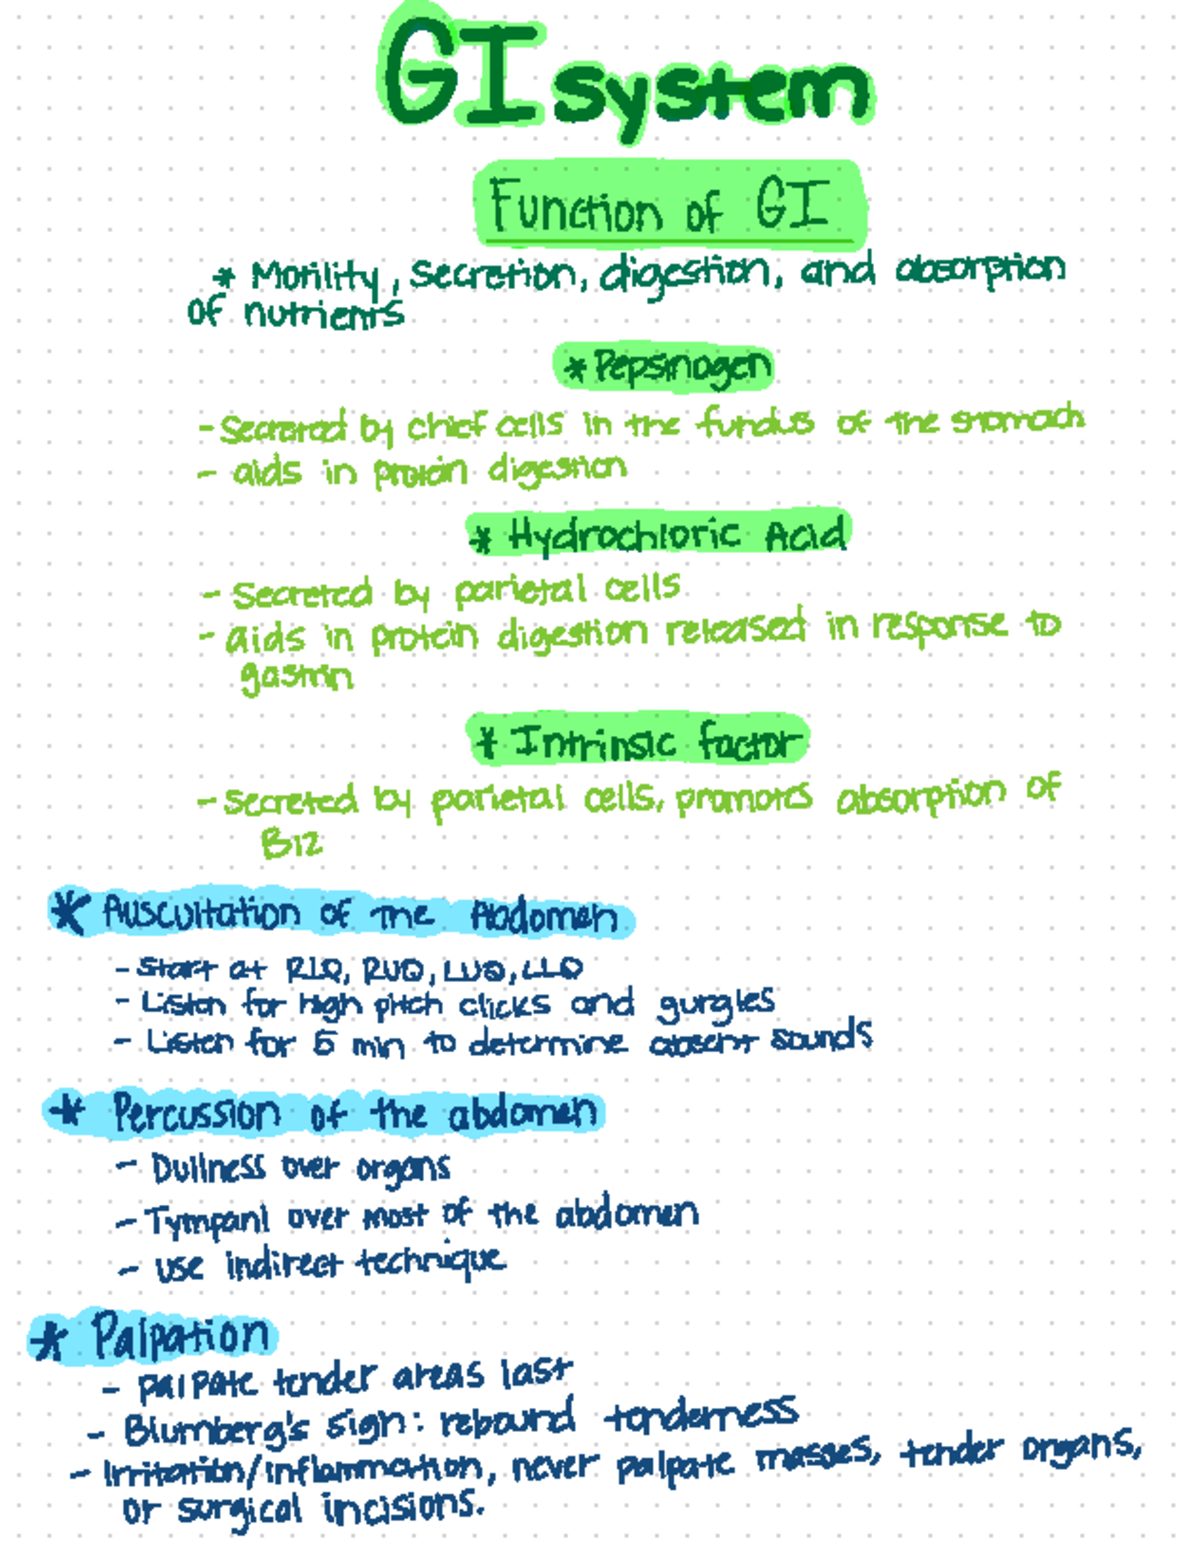 GI system
Function of GI
* Motility, Secretion, digestion, and absorption
of nutrients
* Pepsinogen
- Secreted by chief cells in the fundus of the stomach
- aids in protein digestion
* Hydrochloric Acid
- Secreted by parietal cells
- aids in protein digestion released in response to
gastrin
* Intrinsic factor
- Secreted by parietal cells, promotes absorption of
B12
* Auscultation of the Abdomen
- Start at RLQ, RUQ, LUQ, LLQ
- Listen for high pitch clicks and gurgles
- Listen for 5 min to determine absent sounds
* Percussion of the abdomen
- Dullness over organs
- Tympani over most of the abdomen
- use indirect technique
* Palpation
- palpate tender areas last
- Blumberg's sign: rebound tenderness
- Irritation/inflammation, never palpate masses, tender organs,
or surgical incisions.